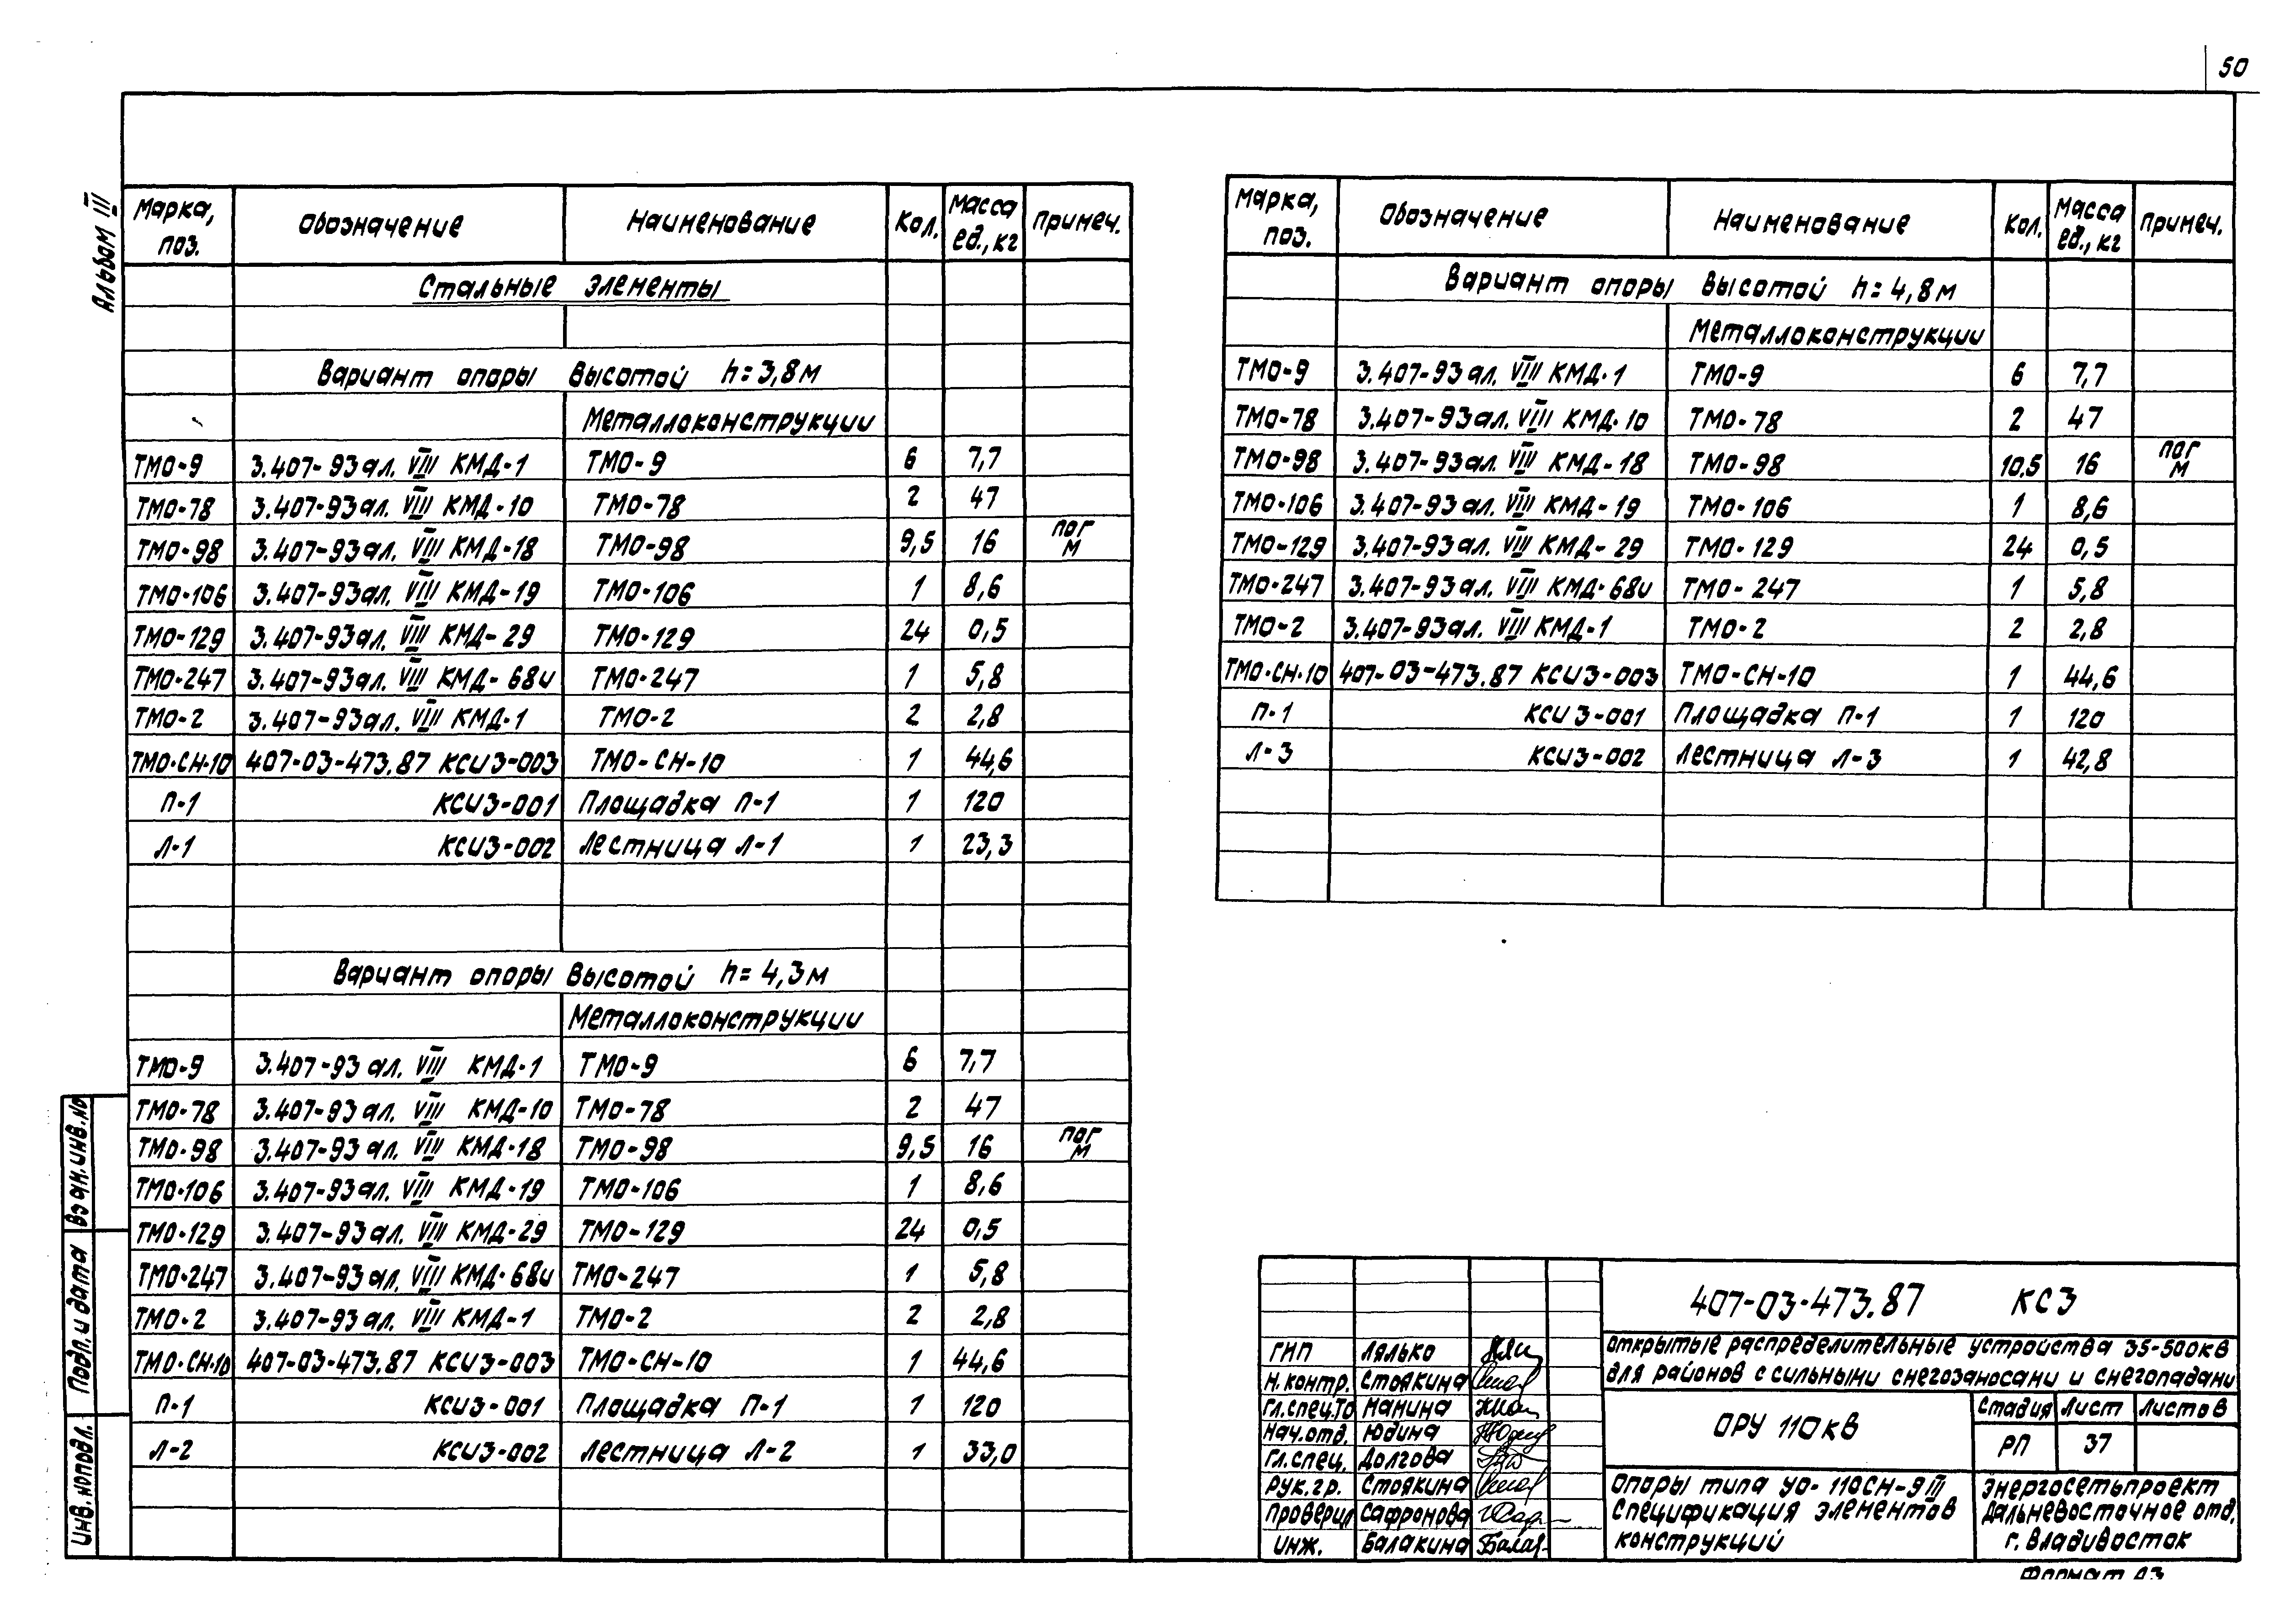 50
Альбом III
Марка, поз. Обозначение Наименование Кол. Масса ед., кг Примеч.
Стальные элементы
Вариант опоры высотой h=3,8м
Металлоконструкции
ТМО-9 3.407-93 ал. VIII КМД-1 ТМО-9 6 7,7
ТМО-78 3.407-93 ал. VIII КМД-10 ТМО-78 2 47
ТМО-98 3.407-93 ал. VIII КМД-18 ТМО-98 9,5 16 пог м
ТМО-106 3.407-93 ал. VIII КМД-19 ТМО-106 1 8,6
ТМО-129 3.407-93 ал. VIII КМД-29 ТМО-129 24 0,5
ТМО-247 3.407-93 ал. VIII КМД-68и ТМО-247 1 5,8
ТМО-2 3.407-93 ал. VIII КМД-1 ТМО-2 2 2,8
ТМО-СН-10 407-03-473.87 КСИ3-003 ТМО-СН-10 1 44,6
П-1 КСИ3-001 Площадка П-1 1 120
Л-1 КСИ3-002 Лестница Л-1 1 23,3
Вариант опоры высотой h=4,3м
Металлоконструкции
ТМО-9 3.407-93 ал. VIII КМД-1 ТМО-9 6 7,7
ТМО-78 3.407-93 ал. VIII КМД-10 ТМО-78 2 47
ТМО-98 3.407-93 ал. VIII КМД-18 ТМО-98 9,5 16 пог м
ТМО-106 3.407-93 ал. VIII КМД-19 ТМО-106 1 8,6
ТМО-129 3.407-93 ал. VIII КМД-29 ТМО-129 24 0,5
ТМО-247 3.407-93 ал. VIII КМД-68и ТМО-247 1 5,8
ТМО-2 3.407-93 ал. VIII КМД-1 ТМО-2 2 2,8
ТМО-СН-10 407-03-473.87 КСИ3-003 ТМО-СН-10 1 44,6
П-1 КСИ3-001 Площадка П-1 1 120
Л-2 КСИ3-002 Лестница Л-2 1 33,0
Марка, поз. Обозначение Наименование Кол. Масса ед., кг Примеч.
Вариант опоры высотой h=4,8м
Металлоконструкции
ТМО-9 3.407-93 ал. VIII КМД-1 ТМО-9 6 7,7
ТМО-78 3.407-93 ал. VIII КМД-10 ТМО-78 2 47
ТМО-98 3.407-93 ал. VIII КМД-18 ТМО-98 10,5 16 пог м
ТМО-106 3.407-93 ал. VIII КМД-19 ТМО-106 1 8,6
ТМО-129 3.407-93 ал. VIII КМД-29 ТМО-129 24 0,5
ТМО-247 3.407-93 ал. VIII КМД-68и ТМО-247 1 5,8
ТМО-2 3.407-93 ал. VIII КМД-1 ТМО-2 2 2,8
ТМО-СН-10 407-03-473.87 КСИ3-003 ТМО-СН-10 1 44,6
П-1 КСИ3-001 Площадка П-1 1 120
Л-3 КСИ3-002 Лестница Л-3 1 42,8
Взам.инв.№
Подп. и дата
Инв.№подл.
407-03-473.87 КС3
Открытые распределительные устройства 35-500кВ
для районов с сильными снегозаносами и снегопадами
ГИП Лялько
Н.контр. Стоякина
Гл.спец.ТО Манина
Нач.отд. Юдина
Гл.спец. Долгова
Рук.гр. Стоякина
Проверил Сафронова
Инж. Балакина
ОРУ 110кВ
Стадия Лист Листов
РП 37
Опоры типа УО-110СН-9III
Спецификация элементов
конструкций
Энергосетьпроект
Дальневосточное отд.
г. Владивосток
Формат А3